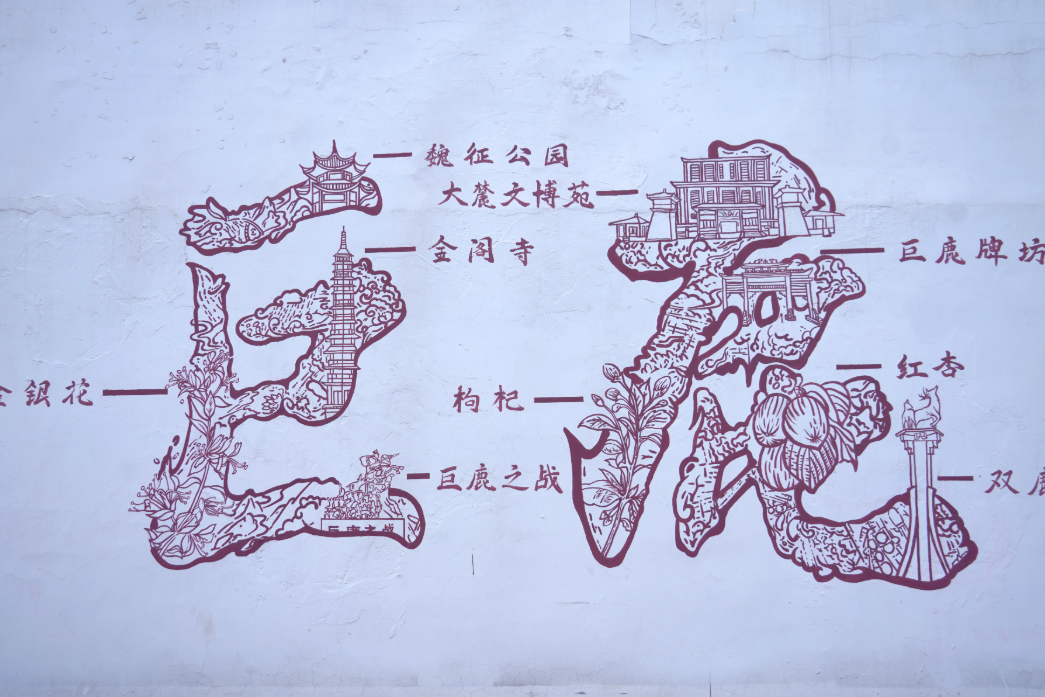 巨鹿
魏征公园
大麓文博苑
金阁寺
巨鹿牌坊
红杏
金银花
枸杞
巨鹿之战
双鹿
巨鹿之战